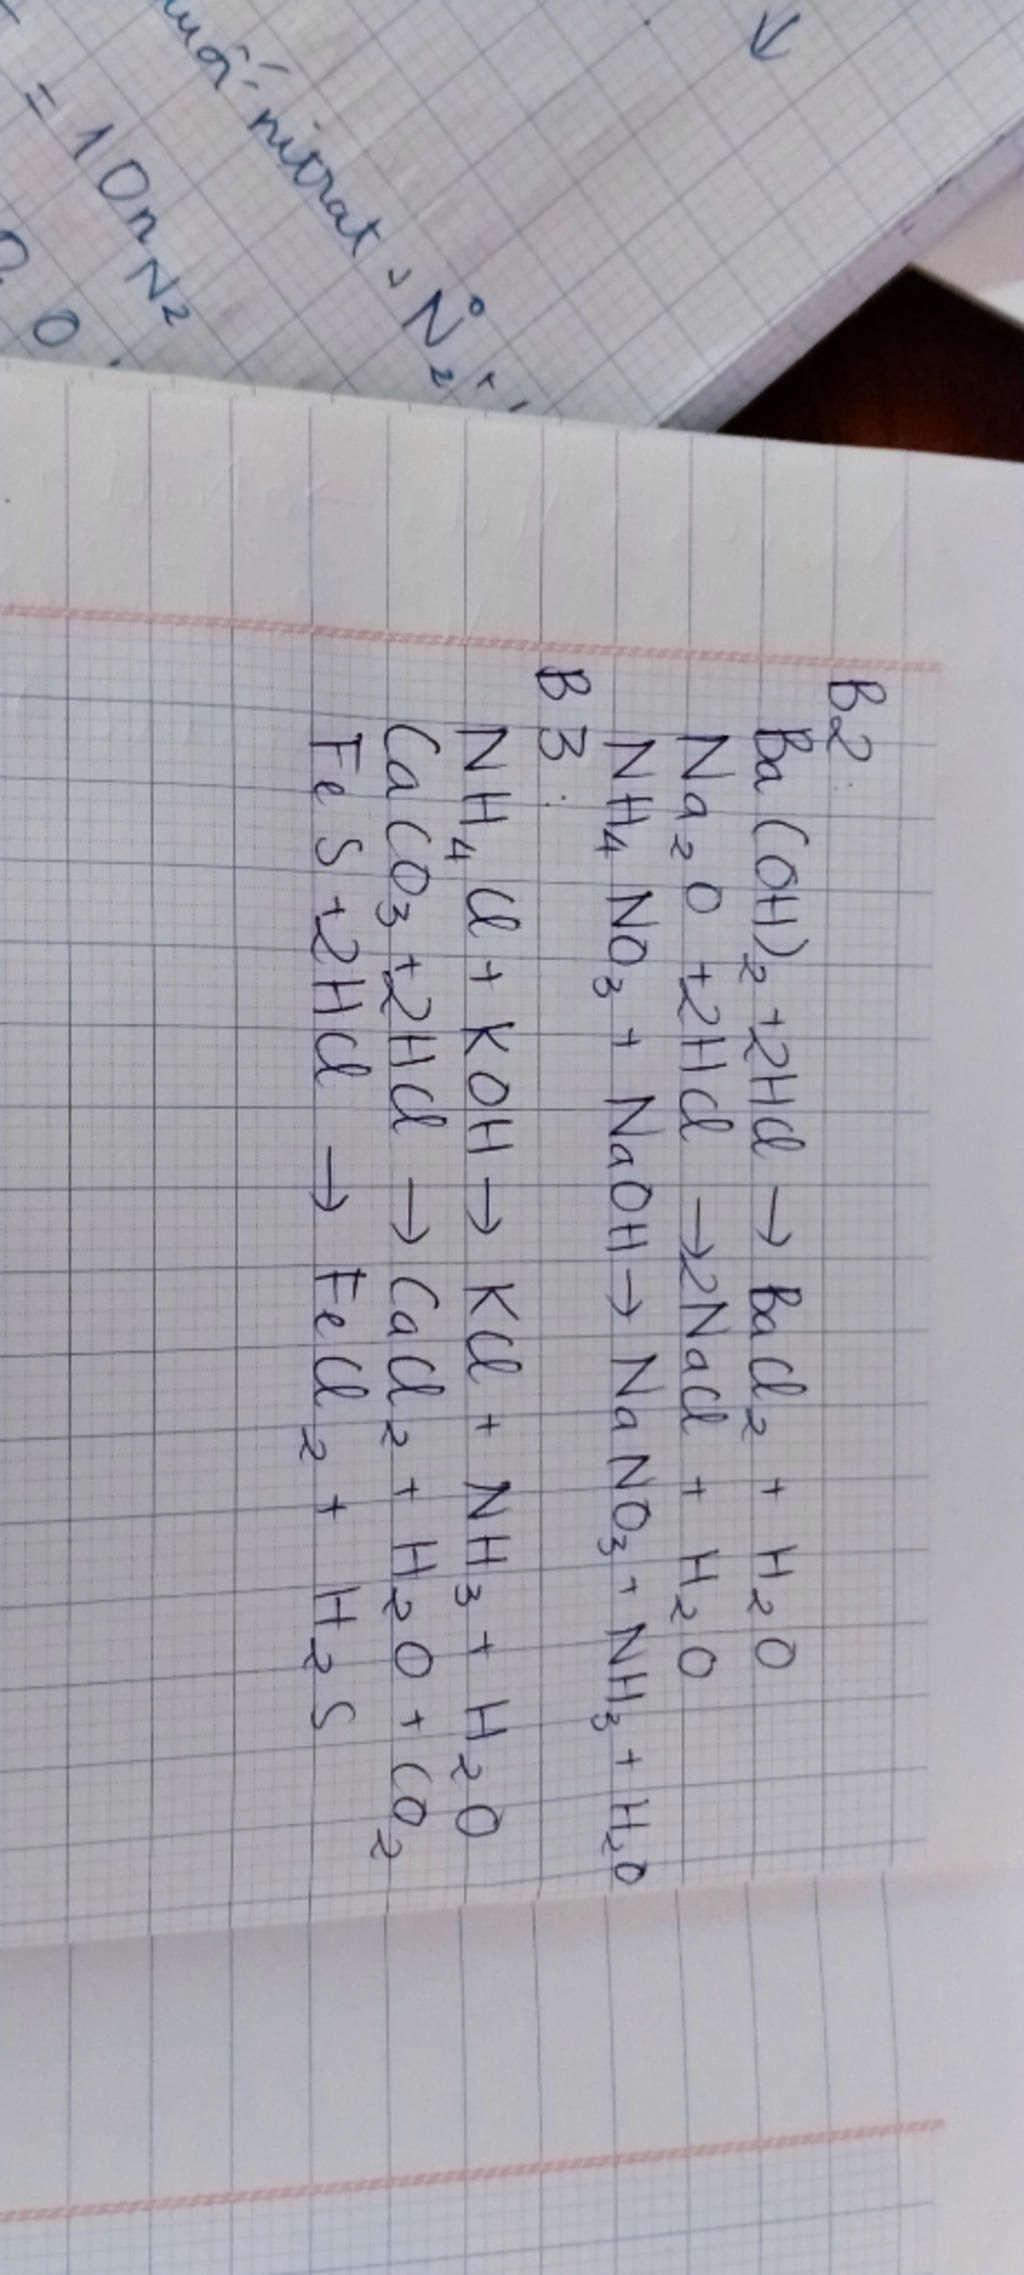 muối nitrat, N⁰₂
= 10n N₂
B2.
Ba(OH)₂ +2HCl → BaCl₂ + H₂O
Na₂O +2HCl →2NaCl + H₂O
NH₄NO₃ + NaOH → NaNO₃ + NH₃ + H₂O
B3:
NH₄Cl + KOH → KCl + NH₃ + H₂O
CaCO₃ +2HCl → CaCl₂ + H₂O + CO₂
FeS +2HCl → FeCl₂ + H₂S